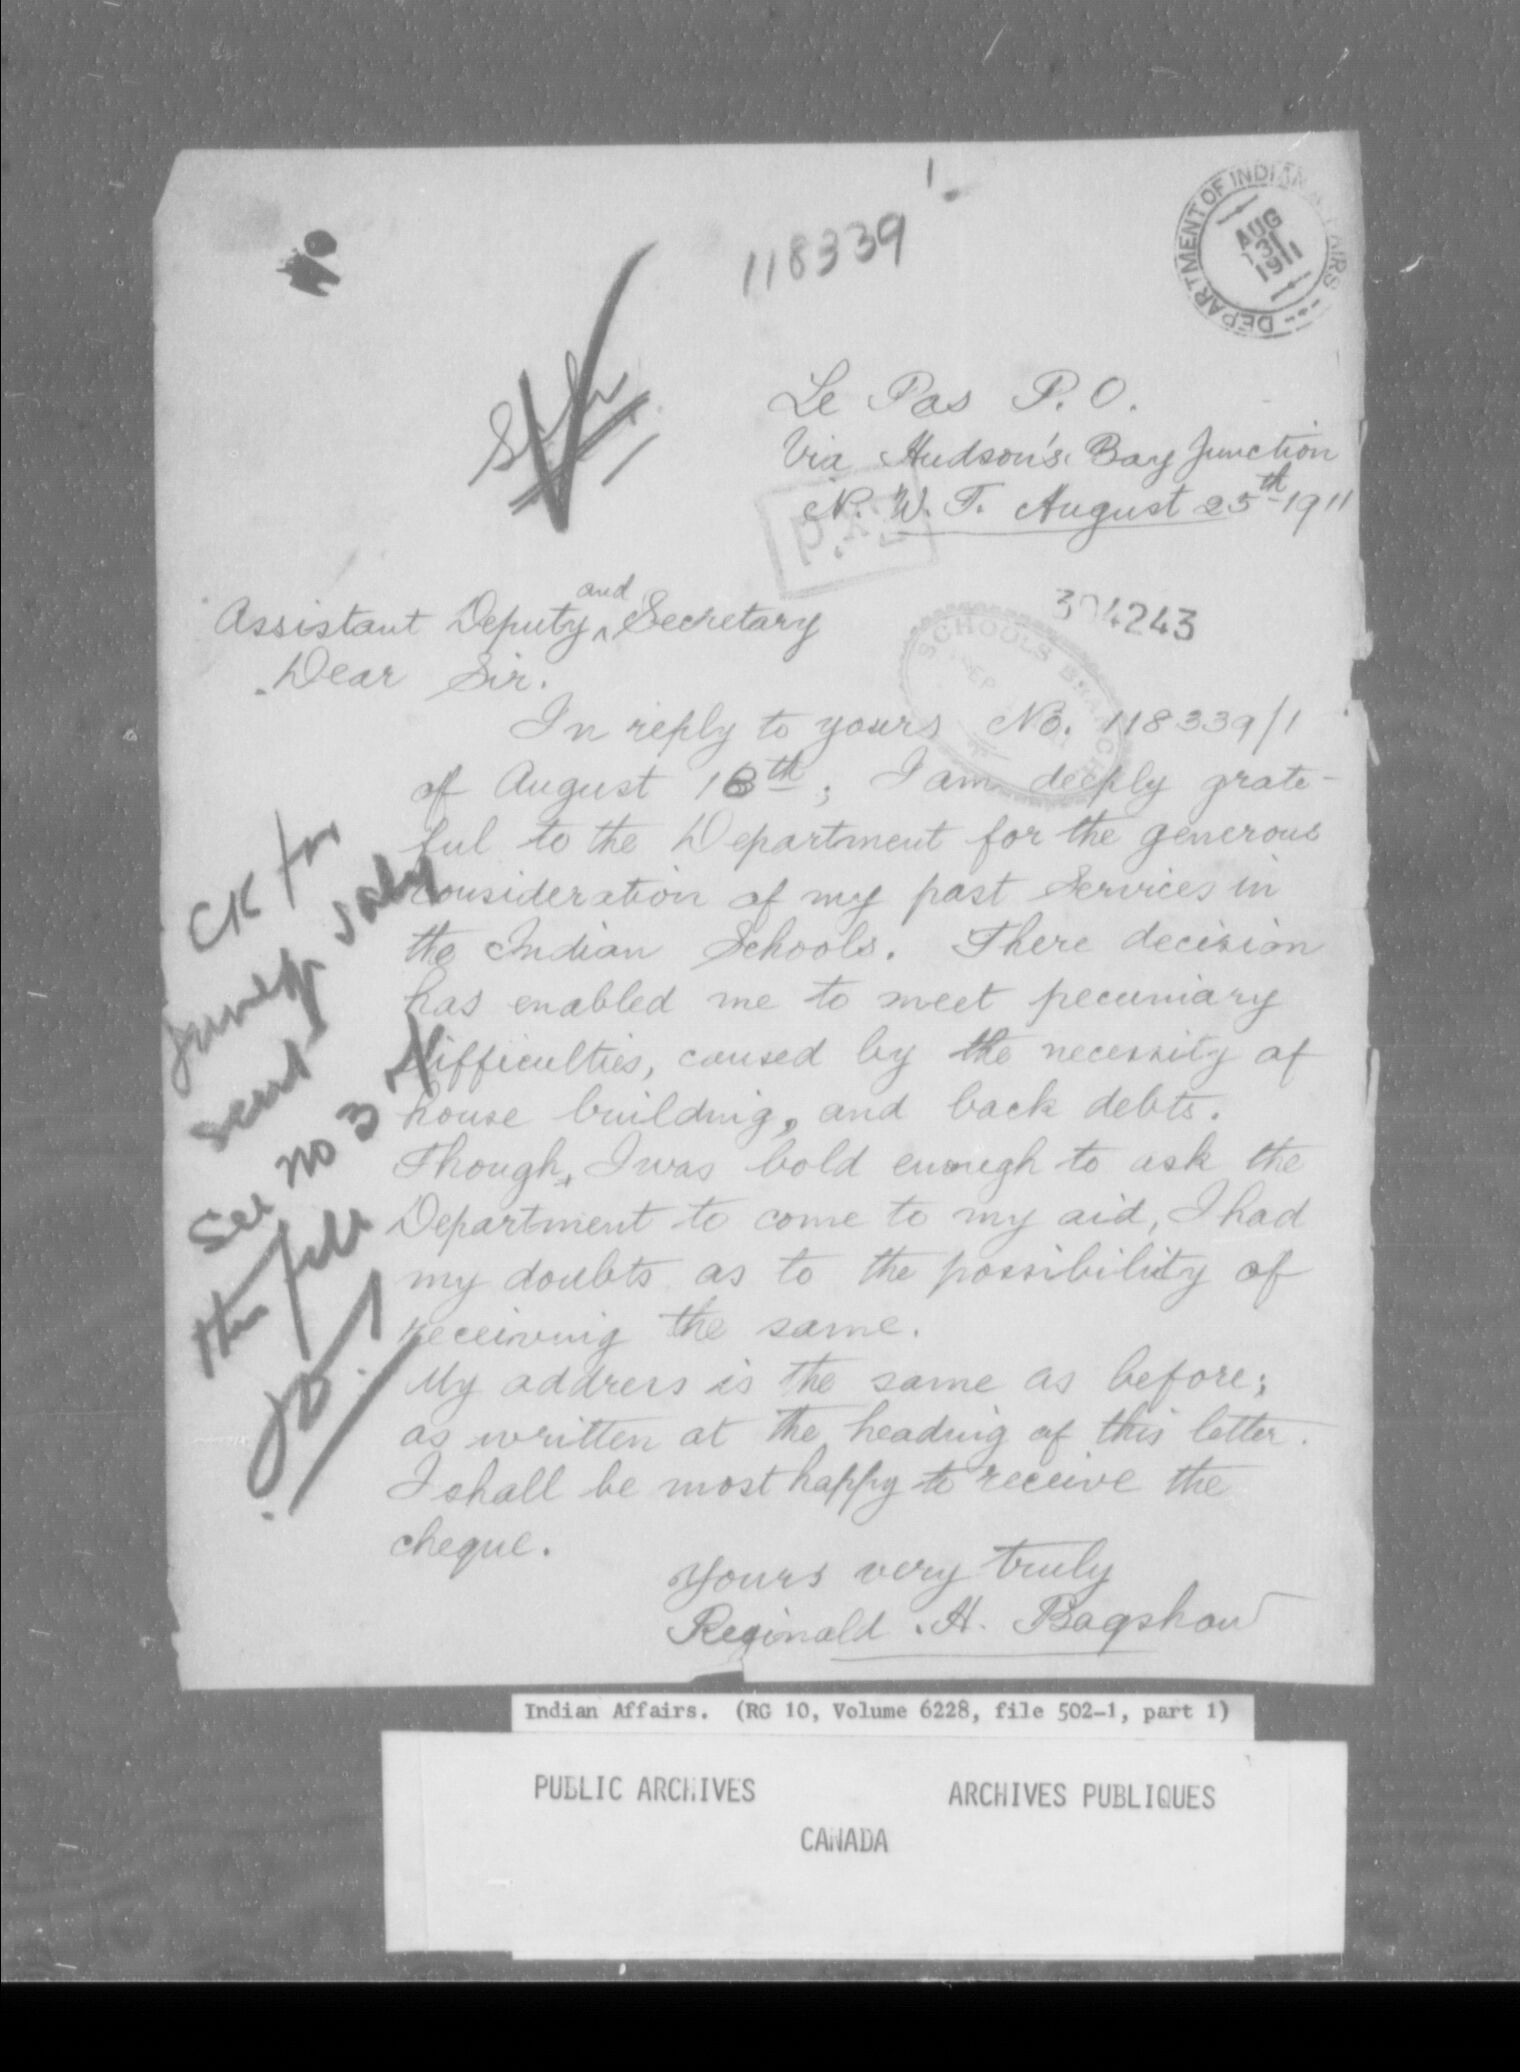 118339
DEPARTMENT OF INDIAN AFFAIRS
AUG
31
1911
Le Pas P.O.
Via Hudson's Bay Junction
N. W. T. August 25th 1911
and
Assistant Deputy ^ Secretary
304243
SCHOOLS BRANCH
SEP
Dear Sir.
In reply to yours No. 118339/1
of August 18th; I am deeply grate-
ful to the Department for the generous
consideration of my past services in
the Indian Schools. There decision
has enabled me to meet pecuniary
difficulties, caused by the necessity of
house building, and back debts.
Though, I was bold enough to ask the
Department to come to my aid, I had
my doubts as to the possibility of
receiving the same.
My address is the same as before;
as written at the heading of this letter.
I shall be most happy to receive the
cheque.
Yours very truly
Reginald . H. Bagshaw
CK for
June qr saly
sent
See no 37
this file
Indian Affairs. (RG 10, Volume 6228, file 502-1, part 1)
PUBLIC ARCHIVES ARCHIVES PUBLIQUES
CANADA